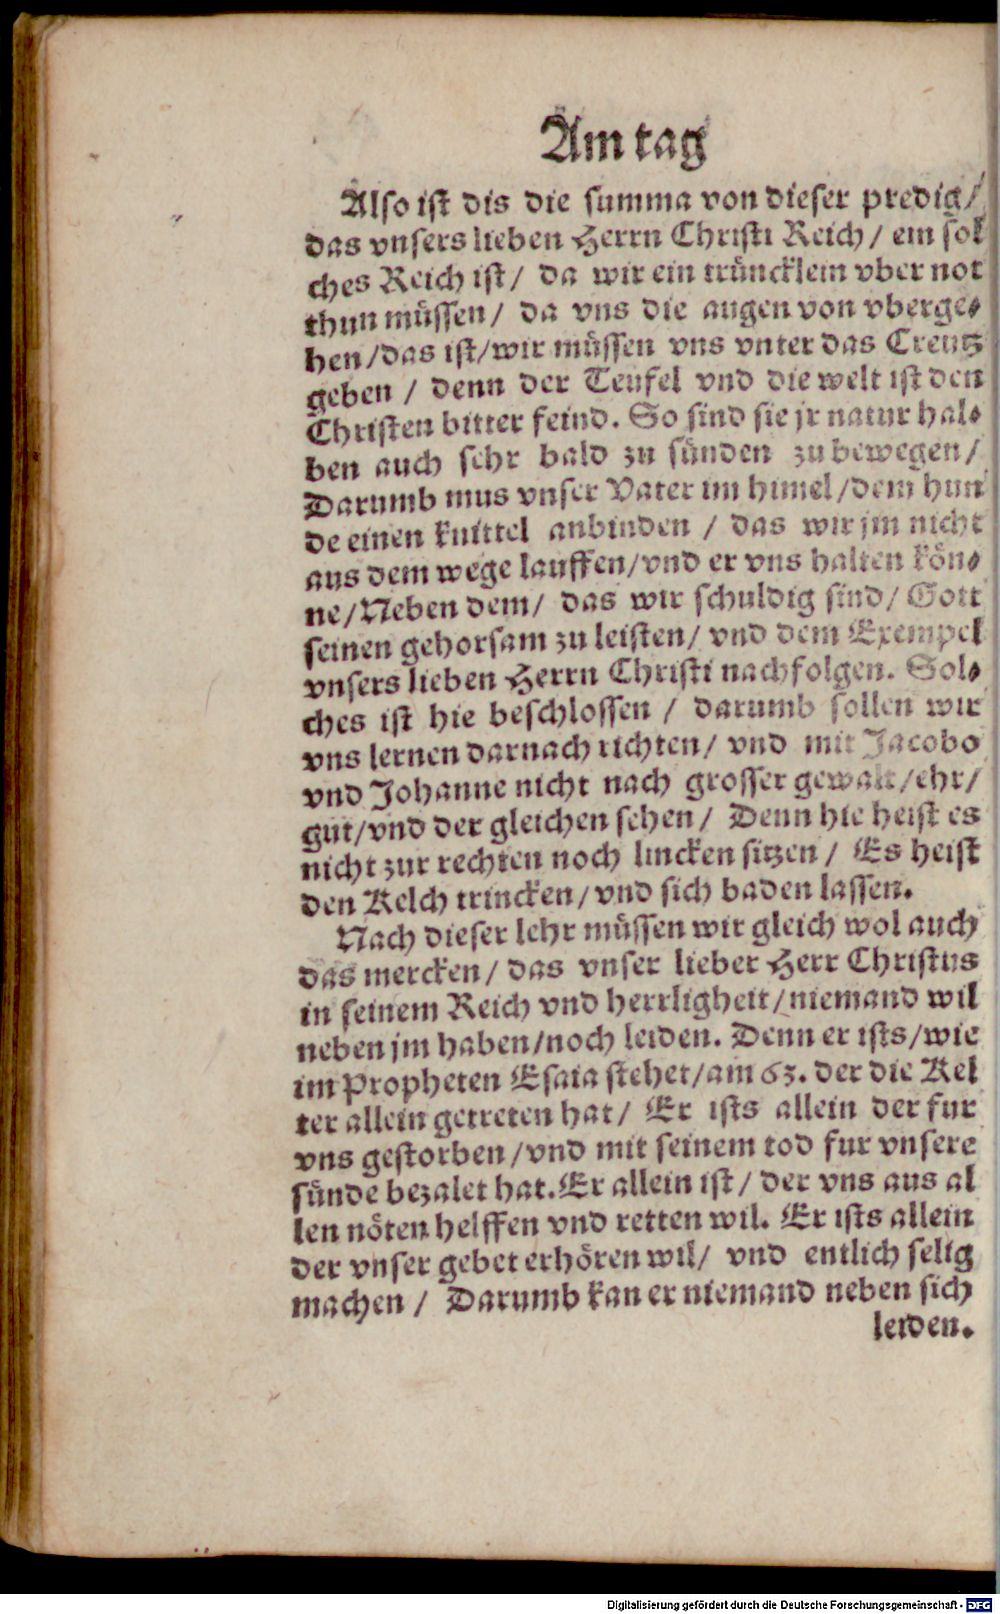 Am tag
Also ist dis die summa von dieser predig/
das vnsers lieben Herrn Christi Reich / ein sol
ches Reich ist / da wir ein trüncklein vber not
thun müssen / da vns die augen von vberge⸗
hen /das ist/wir müssen vns vnter das Creutz
geben / denn der Teufel vnd die welt ist den
Christen bitter feind. So sind sie jr natur hal⸗
ben auch sehr bald zu sünden zu bewegen /
Darumb mus vnser Vater im himel /dem hun
de einen knittel anbinden / das wir jm nicht
aus dem wege lauffen/vnd er vns halten kön⸗
ne/Neben dem/ das wir schuldig sind/ Gott
seinen gehorsam zu leisten/ vnd dem Exempel
vnsers lieben Herrn Christi nachfolgen. Sol⸗
ches ist hie beschlossen / darumb sollen wir
vns lernen darnach richten/ vnd mit Jacobo
vnd Johanne nicht nach grosser gewalt /ehr/
gut/vnd der gleichen sehen / Denn hie heist es
nicht zur rechten noch lincken sitzen / Es heist
den Kelch trincken/vnd sich baden lassen.
Nach dieser lehr müssen wir gleich wol auch
das mercken/ das vnser lieber Herr Christus
in seinem Reich vnd herrligheit /niemand wil
neben jm haben/noch leiden. Denn er ists/wie
im Propheten Esaia stehet/am 63. der die Kel
ter allein getreten hat/ Er ists allein der fur
vns gestorben /vnd mit seinem tod fur vnsere
sünde bezalet hat. Er allein ist / der vns aus al
len nöten helffen vnd retten wil. Er ists allein
der vnser gebet erhören wil/ vnd entlich selig
machen / Darumb kan er niemand neben sich
leiden.
Digitalisierung gefördert durch die Deutsche Forschungsgemeinschaft - DFG